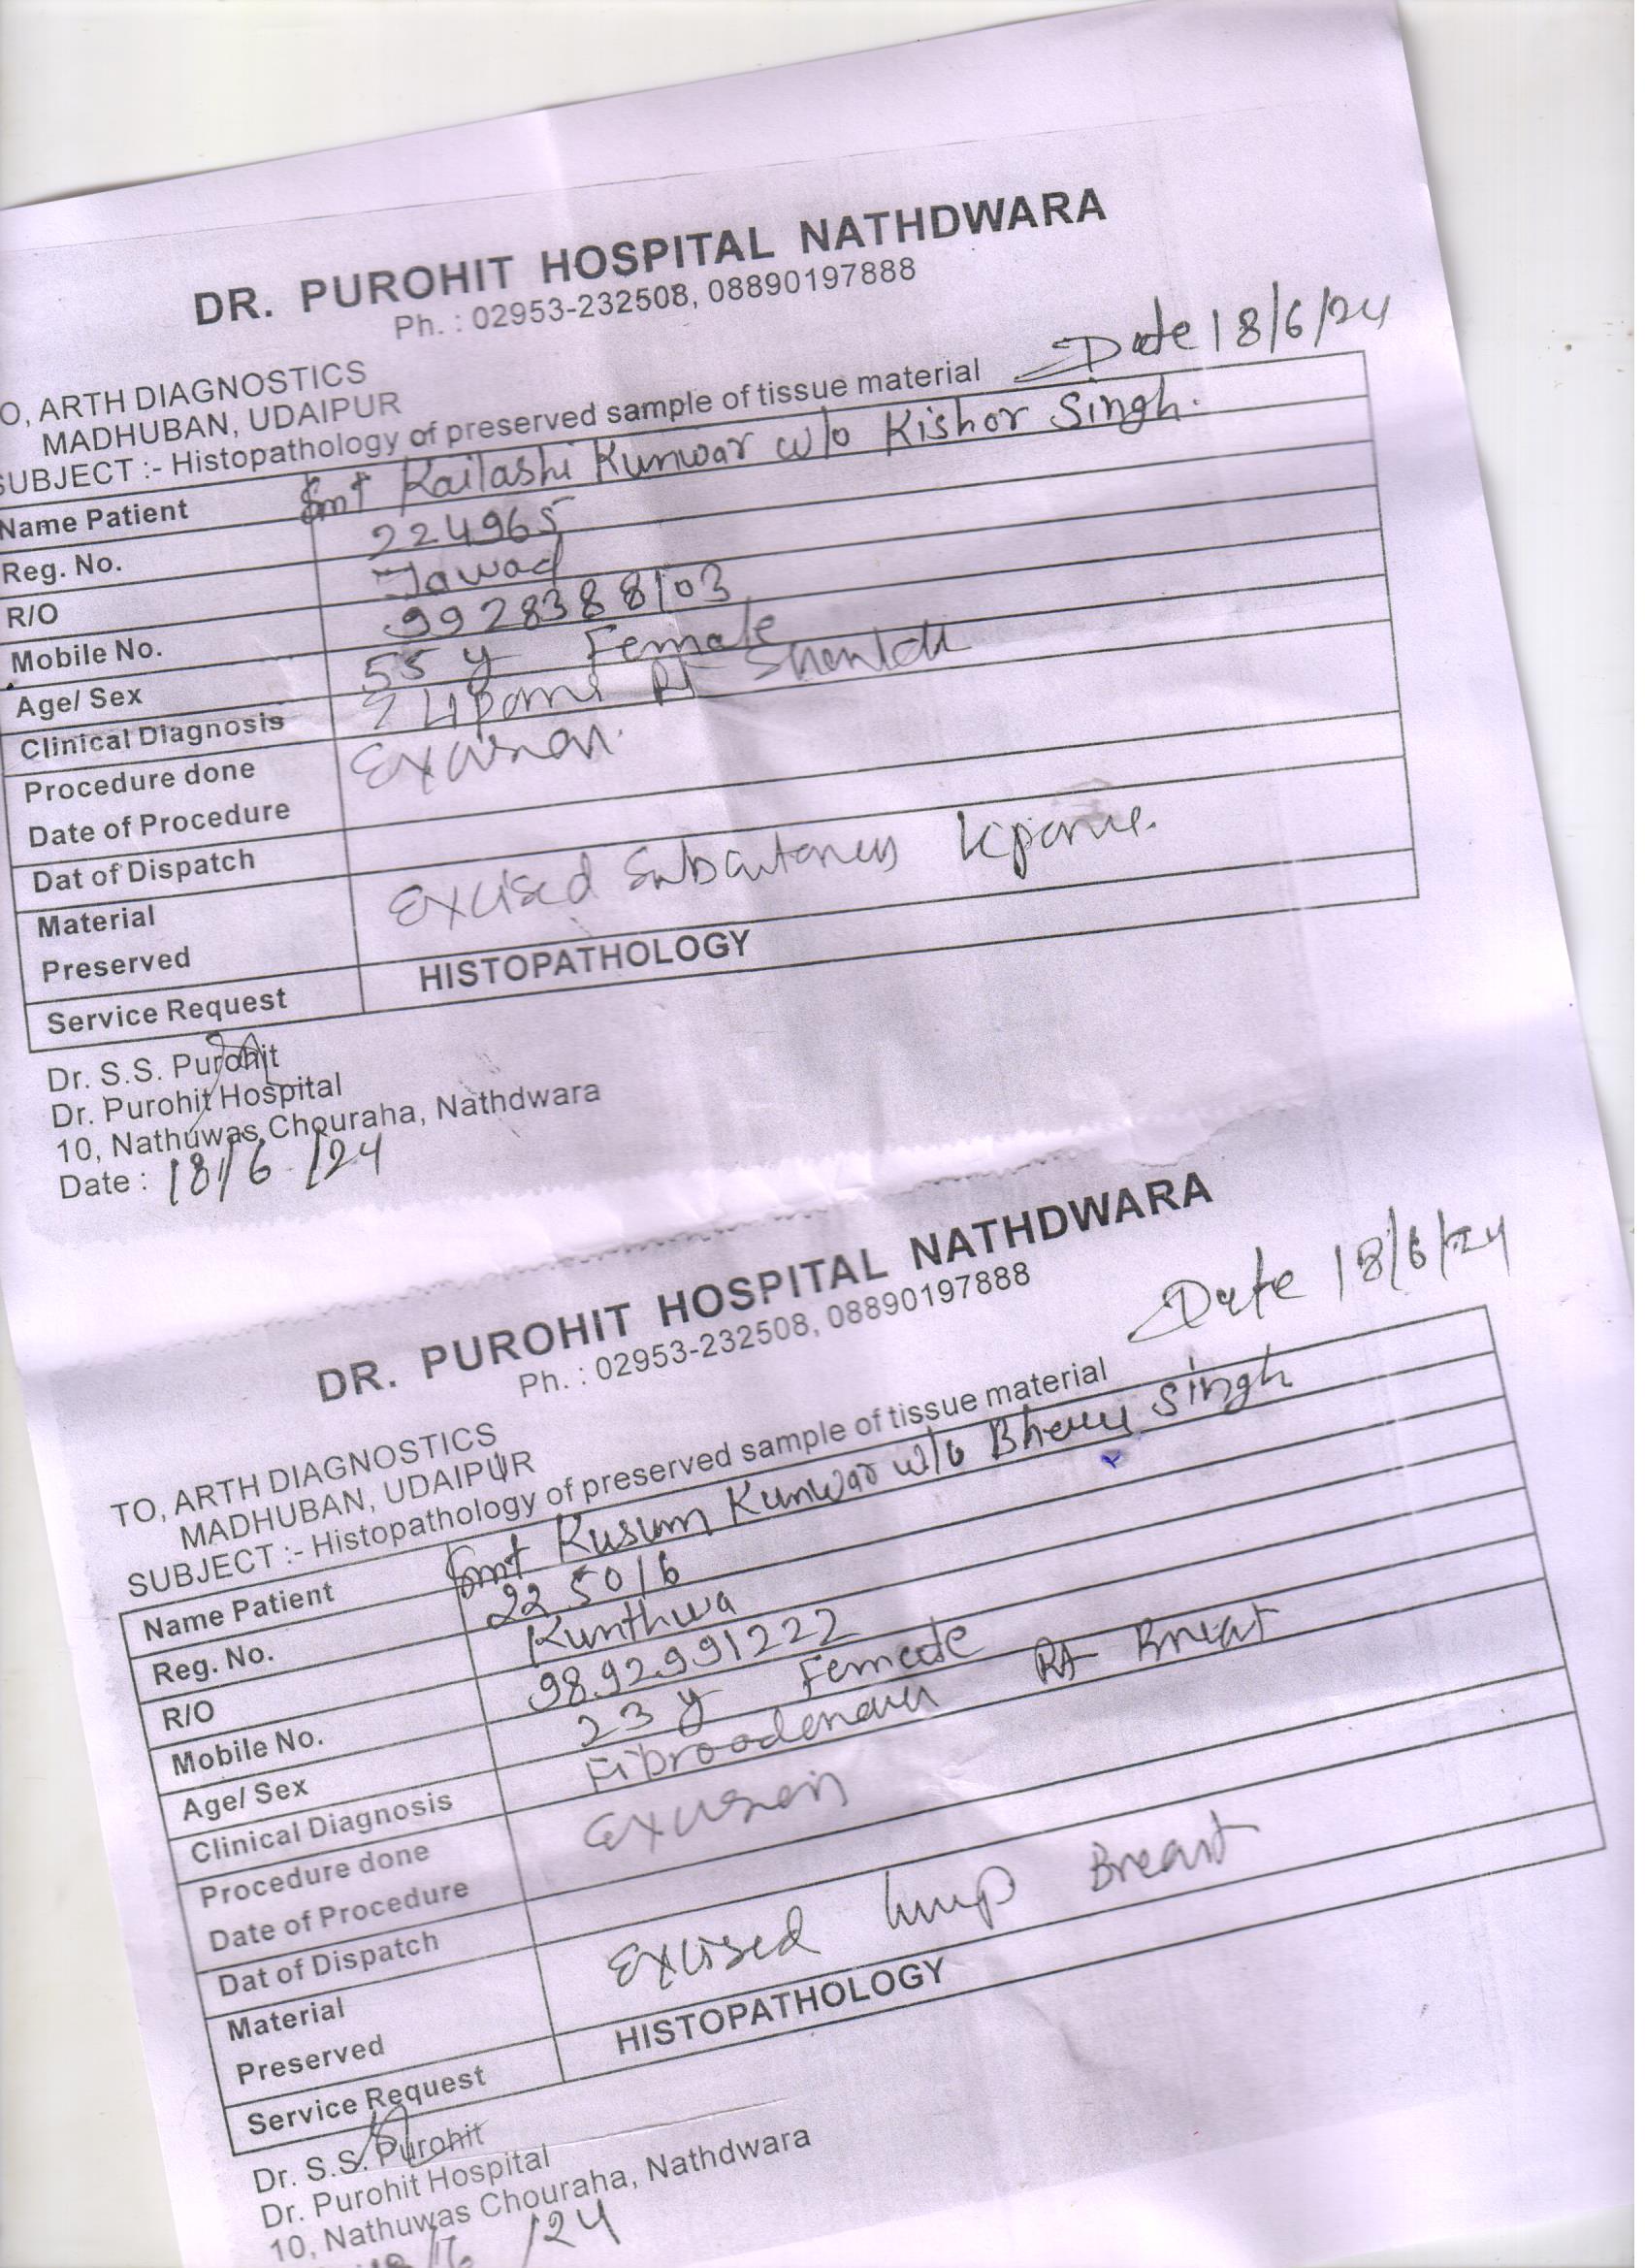 DR. PUROHIT HOSPITAL NATHDWARA
Ph. : 02953-232508, 08890197888
Date 18/6/24
O, ARTH DIAGNOSTICS
MADHUBAN, UDAIPUR
SUBJECT :- Histopathology of preserved sample of tissue material
Name Patient Smt Kailashi Kunwar w/o Kishor Singh.
Reg. No. 224965
R/O Jawad
Mobile No. 9928388103
Age/ Sex 55 y Female
Clinical Diagnosis ? Lipoma Rt Shoulder
Procedure done Excision.
Date of Procedure
Dat of Dispatch
Material
Preserved Excised Subcutaneous lipoma.
Service Request HISTOPATHOLOGY
Dr. S.S. Purohit
Dr. Purohit Hospital
10, Nathuwas Chouraha, Nathdwara
Date : 18/6/24
DR. PUROHIT HOSPITAL NATHDWARA
Ph. : 02953-232508, 08890197888
Date 18/6/24
TO, ARTH DIAGNOSTICS
MADHUBAN, UDAIPUR
SUBJECT :- Histopathology of preserved sample of tissue material
Name Patient Smt Kusum Kunwar w/o Singh
Reg. No. 225016
R/O Kunthwa
Mobile No. 9892991222
Age/ Sex 23 y Female
Clinical Diagnosis Fibroadenoma Rt Breast
Procedure done Excision
Date of Procedure
Dat of Dispatch
Material
Preserved Excised lump Breast
Service Request HISTOPATHOLOGY
Dr. S.S. Purohit
Dr. Purohit Hospital
10, Nathuwas Chouraha, Nathdwara
18/6/24